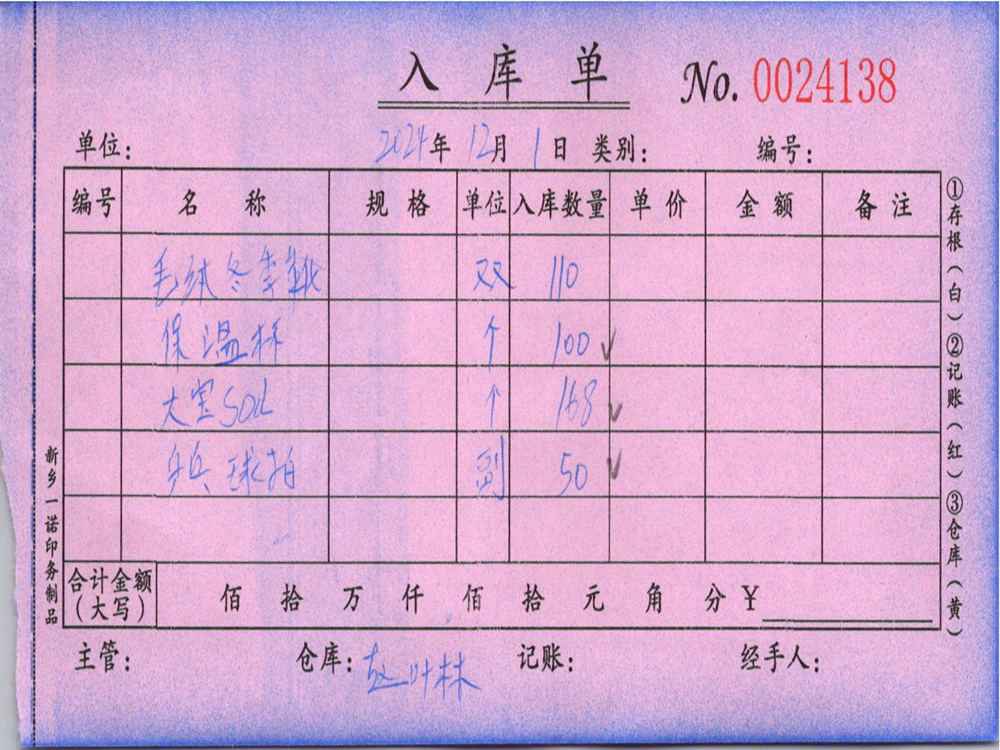 入库单 No. 0024138
单位： 2024年 12月 1日 类别： 编号：
编号 名称 规格 单位 入库数量 单价 金额 备注
毛绒冬季靴 双 110
保温杯 个 100 ✓
大宝SOD 个 168 ✓
乒乓球拍 副 50 ✓
合计金额（大写） 佰 拾 万 仟 佰 拾 元 角 分 ¥
主管： 仓库：赵叶林 记账： 经手人：
①存根（白）②记账（红）③仓库（黄）
新乡一诺印务制品